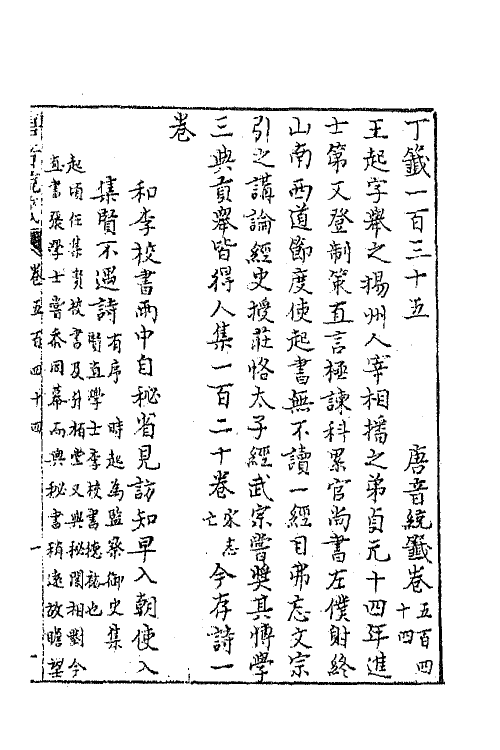 丁籤一百三十五 唐音統籤卷五百四十四
王起字舉之揚州人宰相播之弟貞元十四年進
士第又登制策直言極諫科累官尚書左僕射終
山南西道節度使起書無不讀一經目弗忘文宗
引之講論經史授莊恪太子經武宗嘗奬其博學
三典貢舉皆得人集一百二十卷宋志亡今存詩一
卷
和李校書雨中自秘省見訪知早入朝使入
集賢不遇詩有序 時起為監察御史集賢直學士李校書德裕也
起頃任集賢校書及升柏堂又與秘閣相對今
直書張學士嘗忝同幕而與秘書稍遠故瞻望
唐音統籤 卷五百四十四 一